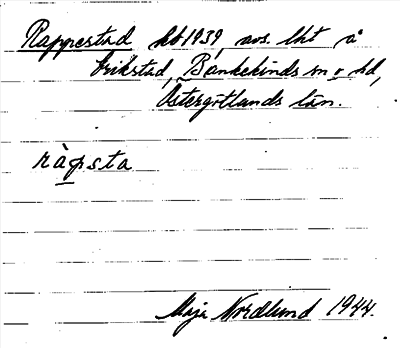 Rappestad kb 1939, avs. lht å
Erikstad, Bankekinds sn o hd,
Östergötlands län.
ràpsta
Maja Nordlund 1944.